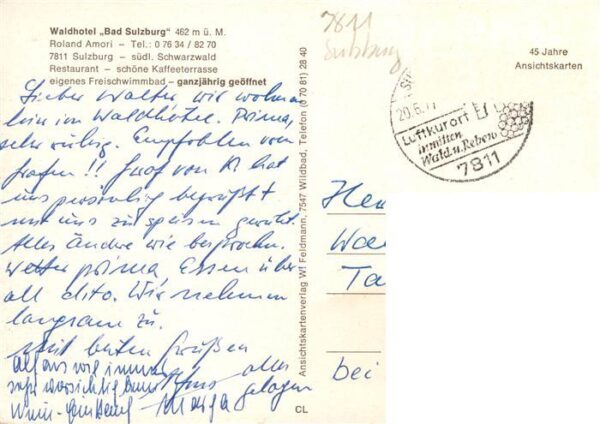 Waldhotel „Bad Sulzburg" 462 m ü. M.
Roland Amori – Tel.: 0 76 34 / 82 70
7811 Sulzburg – südl. Schwarzwald
Restaurant – schöne Kaffeeterrasse
eigenes Freischwimmbad – ganzjährig geöffnet
Lieber Walter, wir wohnen
hier im Waldhotel. Prima,
sehr ruhig. Empfohlen vom
Grafen!! Graf von K hat
uns persönlich begrüßt
und uns zu speisen geruht.
Alles Andere wie besprochen.
Wetter prima, Essen über
all dito. Wir nehmen
langsam zu.
Mit besten Grüßen
Alfons wie immer
sehr vorsichtig alles
gelogen
Marga
Ansichtskartenverlag W. Feldmann, 7547 Wildbad, Telefon (0 70 81) 28 40
CL
7811
Sulzburg
45 Jahre
Ansichtskarten
29.6.77
Luftkurort
inmitten
Wald u. Reben
7811
Her
Wa
Ta
bei